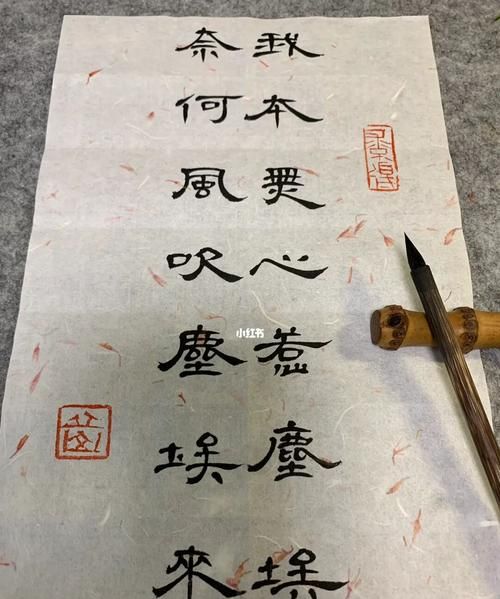 我本無心惹塵埃
奈何風吹塵埃來
小红书